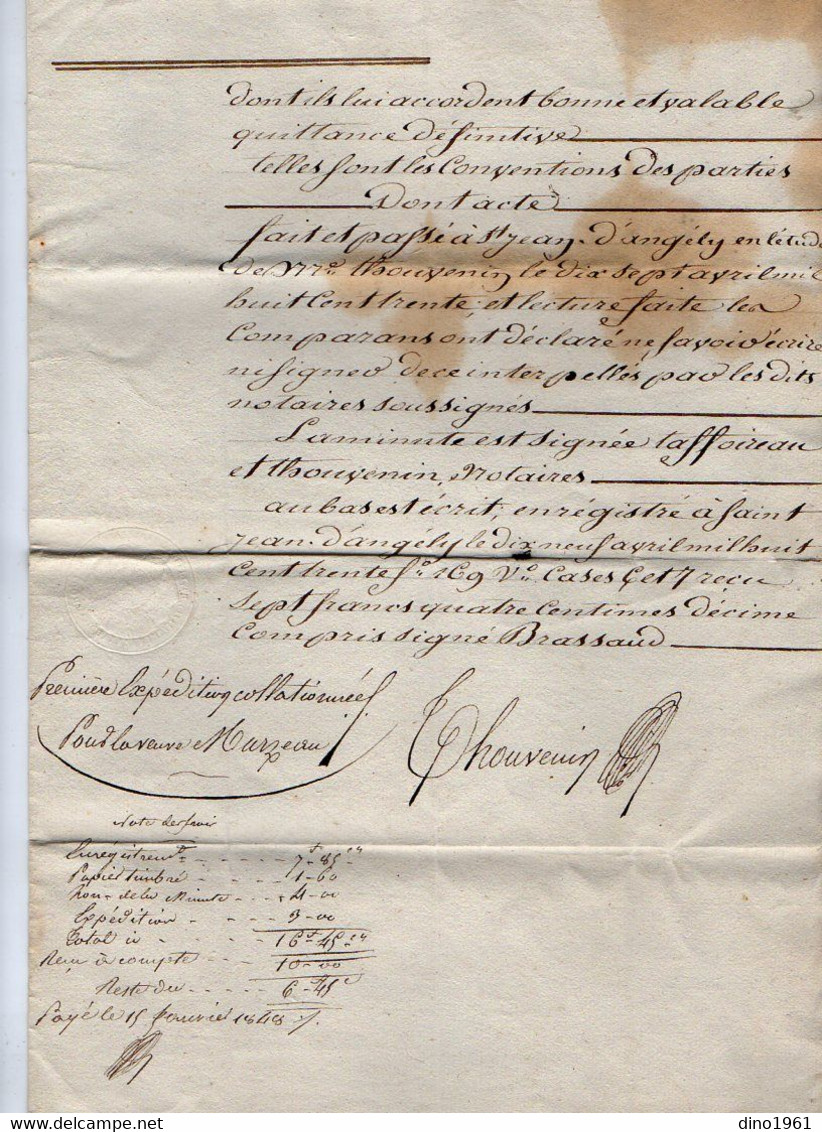 dont ils lui accordent bonne et valable
quittance définitive
telles sont les Conventions des parties
Dont acte
fait et passé à St. Jean-d'angély en l'étude
de Me. thouvenin, le dix sept avril mil
huit Cent trente; et lecture faite les
Comparans ont déclaré ne savoir écrire
ni signer de ce interpellés par les dits
notaires soussignés
La minute est signée taffoireau
et thouvenin, Notaires
au bas est écrit; enregistré à Saint
jean-d'angély le dix neuf avril mil huit
Cent trente fo. 169 Vo. Cases 6 et 7 reçu
Sept francs quatre Centimes décime
Compris signé Brassaud
Première Expédition collationnée
Pour la veuve Marzeau
Thouvenin
Note de
Enregistremt. 7f-85cs
Papier timbré 1-60
hon. de la Minute 4-00
Expédition 3-00
Total 16f-45cs
Reçu à compte 10-00
Reste du 6f-45c
Payé le 15 1848
dino1961